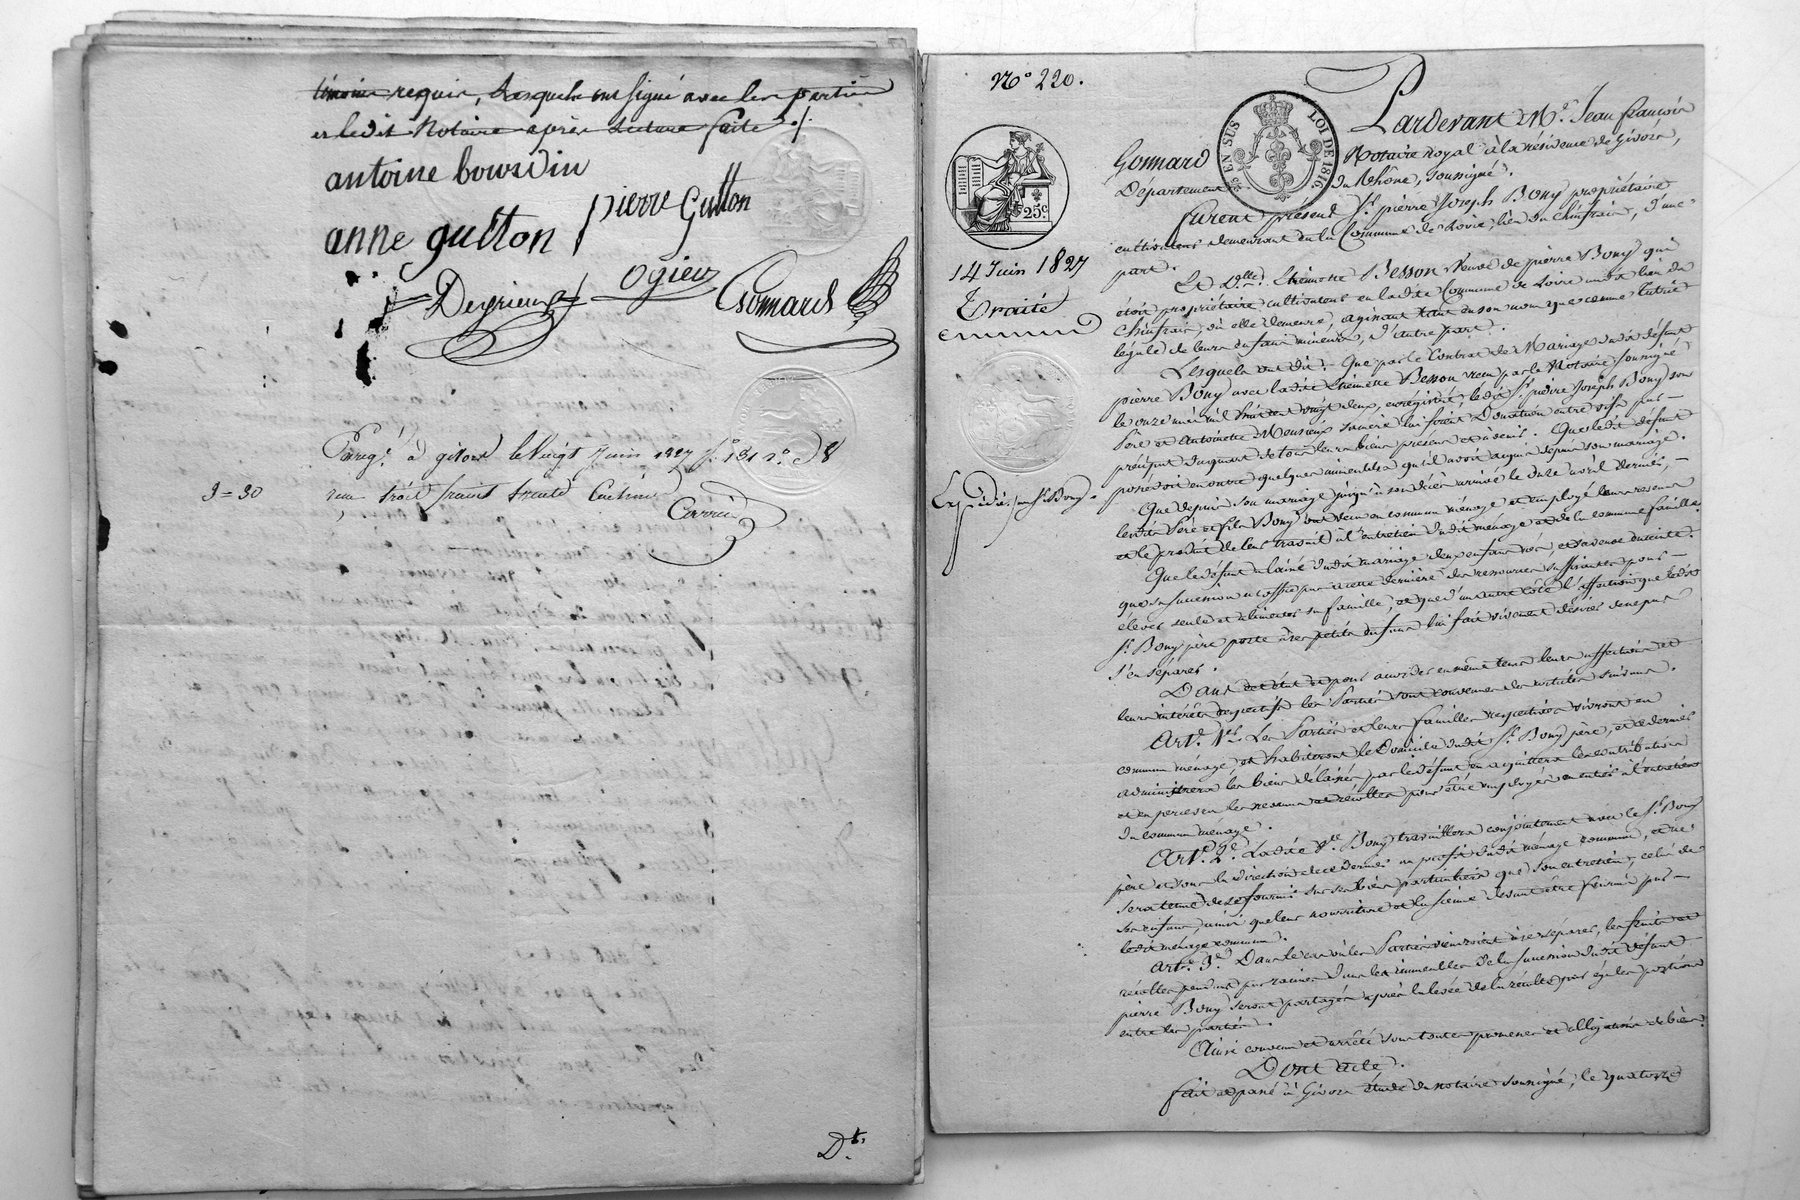 témoins requis, lesquels ont signé avec les parties
et ledit Notaire après lecture faite ./.
antoine bourdin
pierre Gutton
anne gutton
Ogier
Degrieux
Gonnard
Enreg. à givors le vingt Juin 1827 f. 131 r. c. 8
3=30 reçu trois francs trente centimes
Dt.
No. 220.
25c
14 Juin 1827
Traité
commun
Expédié, pr Sr. Bony.
25c EN SUS LOI DE 1816.
Pardevant Mr. Jean françois
Gonnard Notaire royal à la résidence de Givors,
Departement du Rhône, soussigné.
furent présent Sr. pierre Joseph Bony propriétaire
cultivateur demeurant en la Commune de Loire, lieu du Chinfrais, d'une
part.
Et Dlle. Etiennette Besson Veuve de pierre Bony qui
étoit propriétaire cultivateur en ladite Commune de Loire audit lieu du
Chinfrais où elle demeure, agissant tant en son nom que comme tutrice
légale de leurs enfans mineurs, d'autre part.
Lesquels ont dit : Que par le Contrat de Mariage dudit défunt
pierre Bony avec ladite Etiennette Besson reçu par le Notaire soussigné
le onze mai mil huit cent vingt deux, enregistré, ledit Sr. pierre Joseph Bony son
père et Antoinette Mousieux sa mère lui firent Donation entre vifs par
préciput du quart de tous leurs biens présens et à venir. Que ledit défunt
possédoit en outre quelques immeubles qu'il avoit acquis depuis son mariage.
Que depuis son mariage jusqu'à son décès arrivé le onze avril dernier,
lesdits père et fils Bony ont vécu en commun ménage et employé leurs revenus
et le produit de leur travail à l'entretien dudit ménage et de la commune famille.
Que le défunt a laissé dudit mariage deux enfans nés, et sa veuve enceinte.
que sa succession n'offre pas à cette dernière des ressources suffisantes pour
élever seule et alimenter sa famille, et que d'un autre côté l'affection que ledit
Sr. Bony père porte à ses petits enfans lui fait vivement désirer de ne pas
s'en séparer.
Dans cet état et pour accorder en même tems leurs affections et
leurs intérêts respectifs les Parties sont convenues des articles suivans.
Art. 1er. Les Parties et leurs familles respectives vivront en
commun ménage et habiteront le Domicile dudit Sr. Bony père, et ce dernier
administrera les biens délaissés par le défunt en acquittera les contributions
et en percevra les revenus et récoltes pour être employés en entier à l'entretien
du commun ménage.
Art. 2e. Ladite Ve. Bony travaillera conjointement avec le Sr. Bony
père et sous la direction de ce dernier au profit dudit ménage commun, et ne
sera tenue de se fournir sur ses biens particuliers que son entretien, celui de
ses enfans, ainsi que leur nourriture et la sienne devant être fournie par
ledit ménage commun.
Art. 3e. Dans le cas où les Parties viendroient à se séparer, les fruits et
récoltes pendans par racines dans les immeubles de la succession dudit défunt
pierre Bony seront partagés après la levée de la récolte par égales portions
entre les parties.
Ainsi convenu et arrêté sous toutes promesses et obligations de biens.
Dont acte.
fait et passé à Givors étude du notaire soussigné, le quatorze